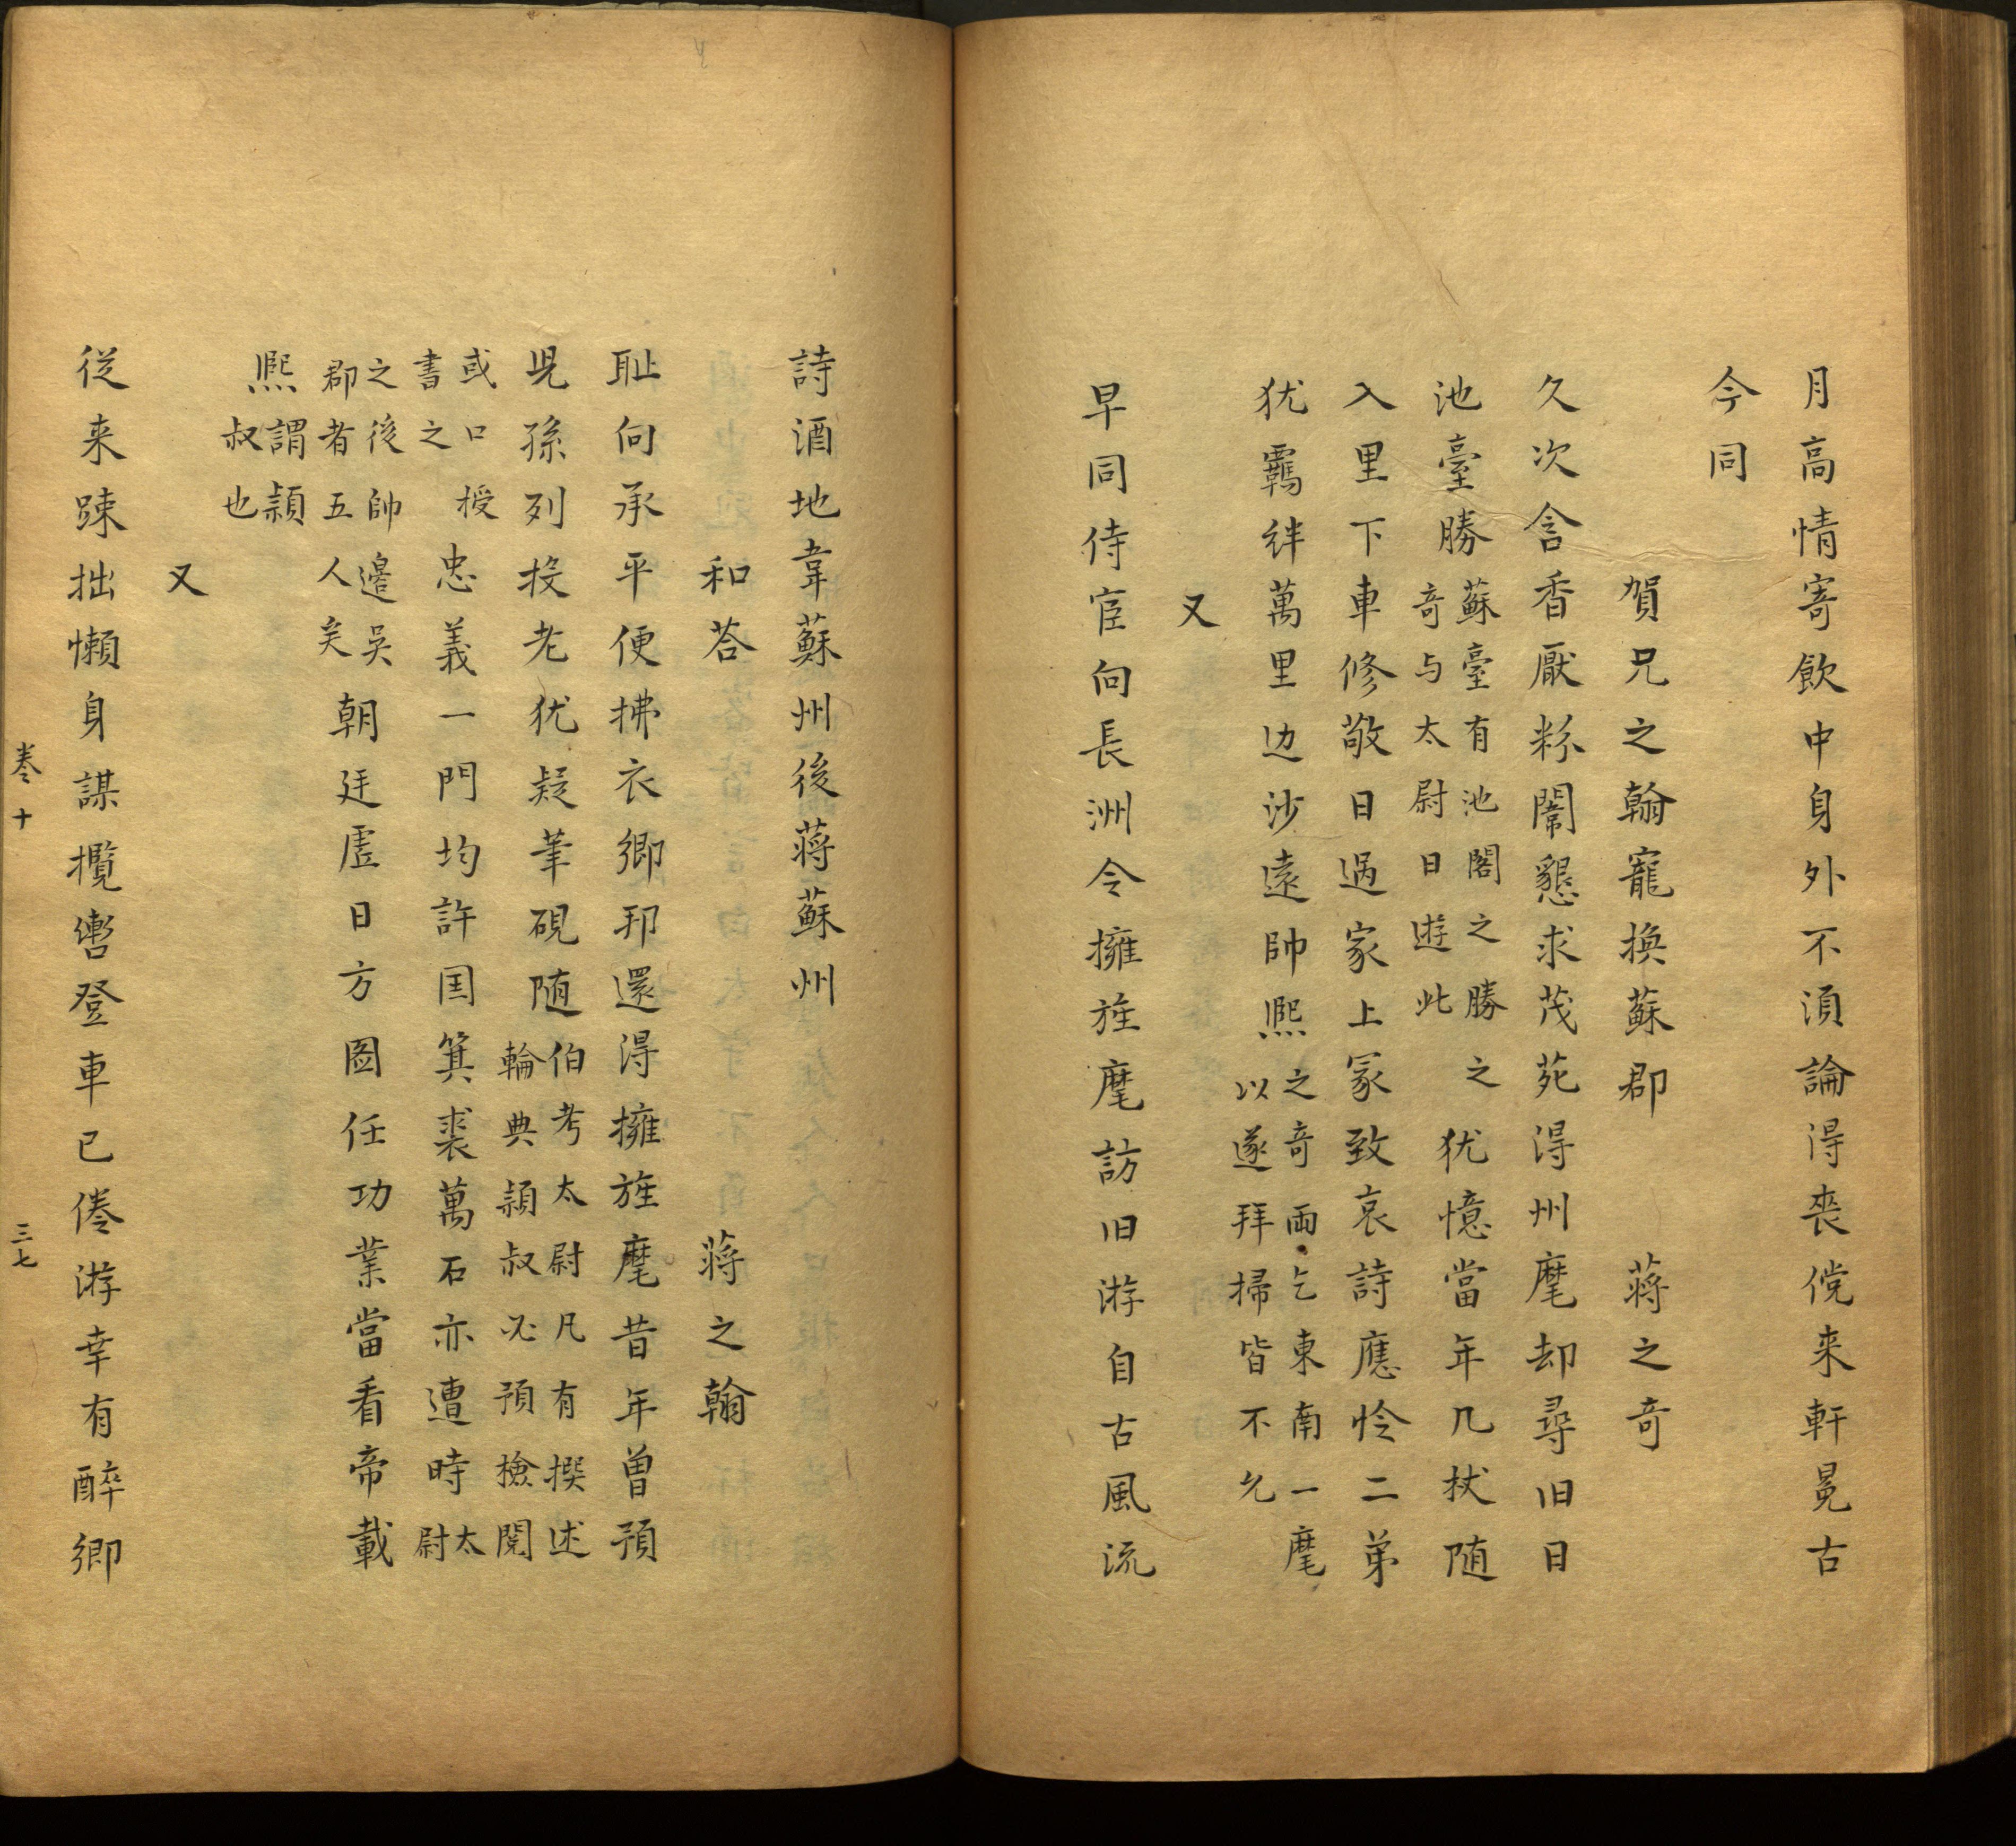 月高情寄飲中身外不須論得喪儻来軒冕古
今同
賀兄之翰寵換蘇郡　蔣之奇
久次含香厭粉闈懇求茂苑得州麾却尋旧日
池臺勝
蘇臺有池閣之勝之
奇与太尉日遊此
犹憶當年几杖随
入里下車修敬日過家上冢致哀詩應怜二弟
犹羈絆萬里边沙遠帥熈
之奇両乞東南一麾
以遂拜掃皆不允
又
早同侍宦向長洲今擁旌麾訪旧游自古風流
詩酒地韋蘇州後蔣蘇州
和荅　蔣之翰
耻向承平便拂衣卿邦還得擁旌麾昔年曽預
児孫列投老犹疑筆硯随
伯考太尉凡有撰述
輪典頴叔必預撿閱
或口授
書之
忠義一門均許囯箕裘萬石亦遭時
太
尉
之後帥邉吴
郡者五人矣
朝廷虚日方圖任功業當看帝載
熈
謂頴
叔也
又
従来踈拙懶身謀攬轡登車已倦游幸有醉卿
巻十
三七